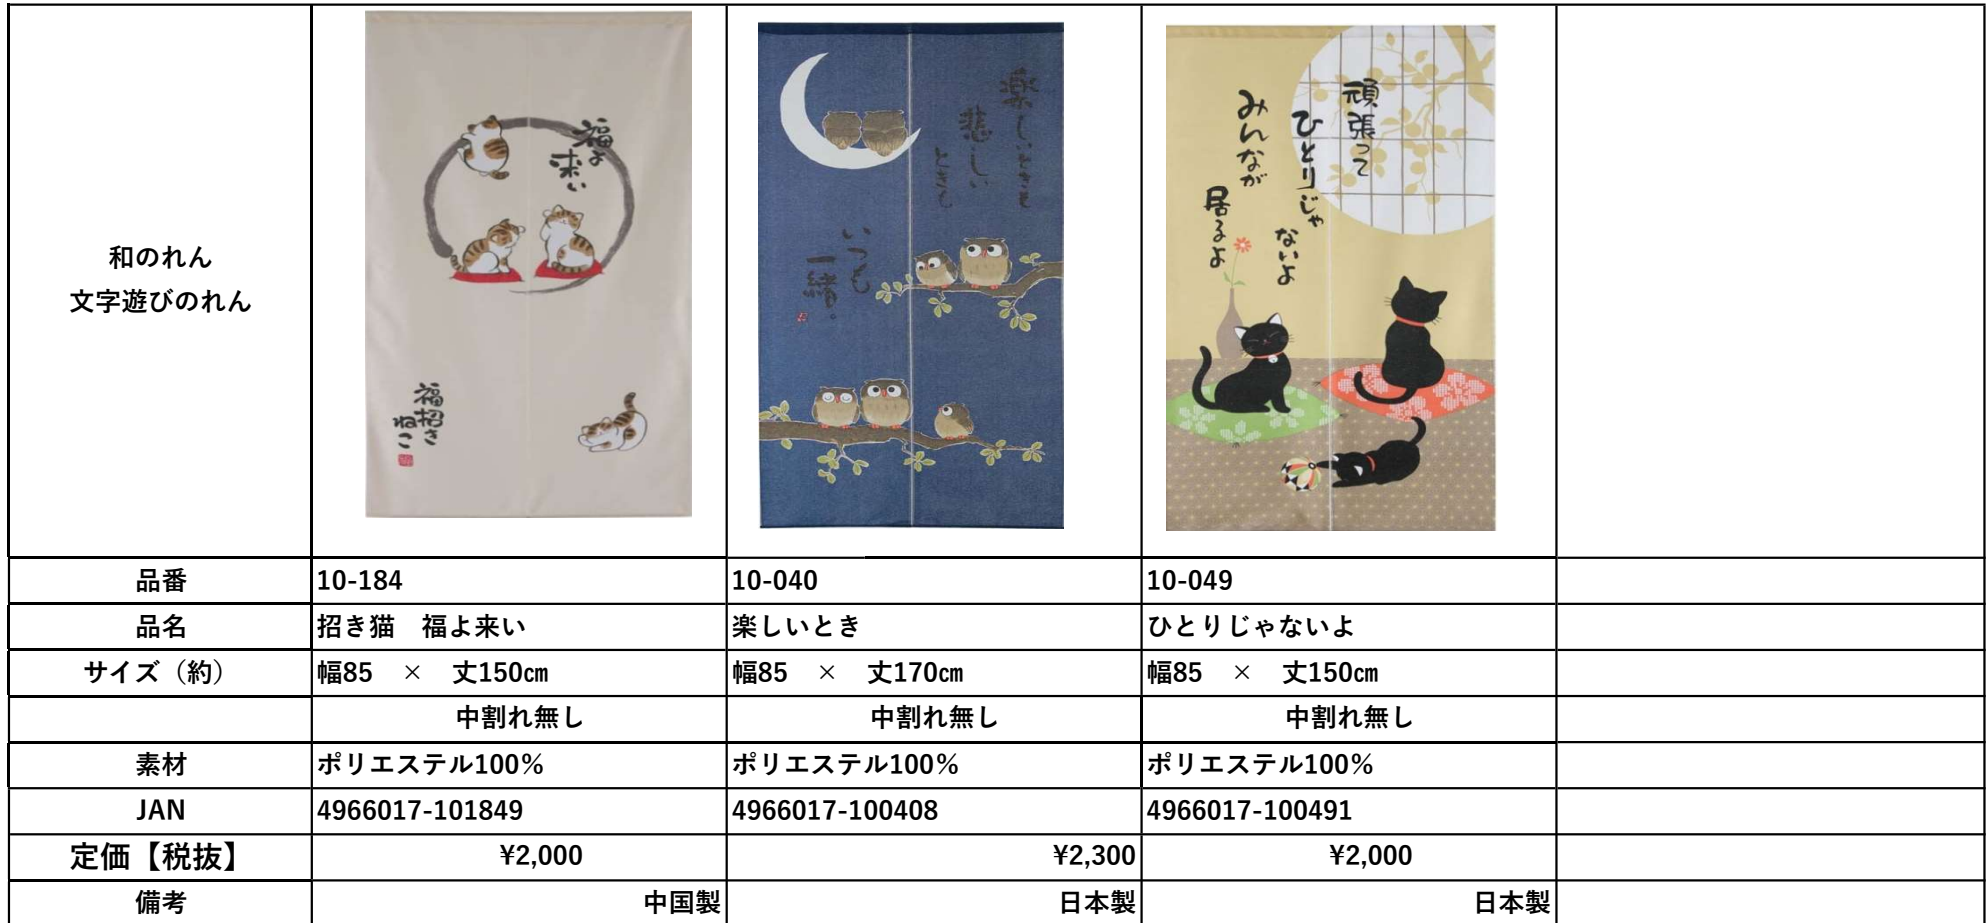 和のれん
文字遊びのれん
福よ
来い
福招き
ねこ
楽しいときも
悲しい
ときも
いつも
一緒。
頑張って
ひとりじゃ
ないよ
みんなが
居るよ
品番 10-184 10-040 10-049
品名 招き猫　福よ来い 楽しいとき ひとりじゃないよ
サイズ（約） 幅85　×　丈150㎝ 幅85　×　丈170㎝ 幅85　×　丈150㎝
中割れ無し 中割れ無し 中割れ無し
素材 ポリエステル100％ ポリエステル100％ ポリエステル100％
JAN 4966017-101849 4966017-100408 4966017-100491
定価【税抜】 ¥2,000 ¥2,300 ¥2,000
備考 中国製 日本製 日本製